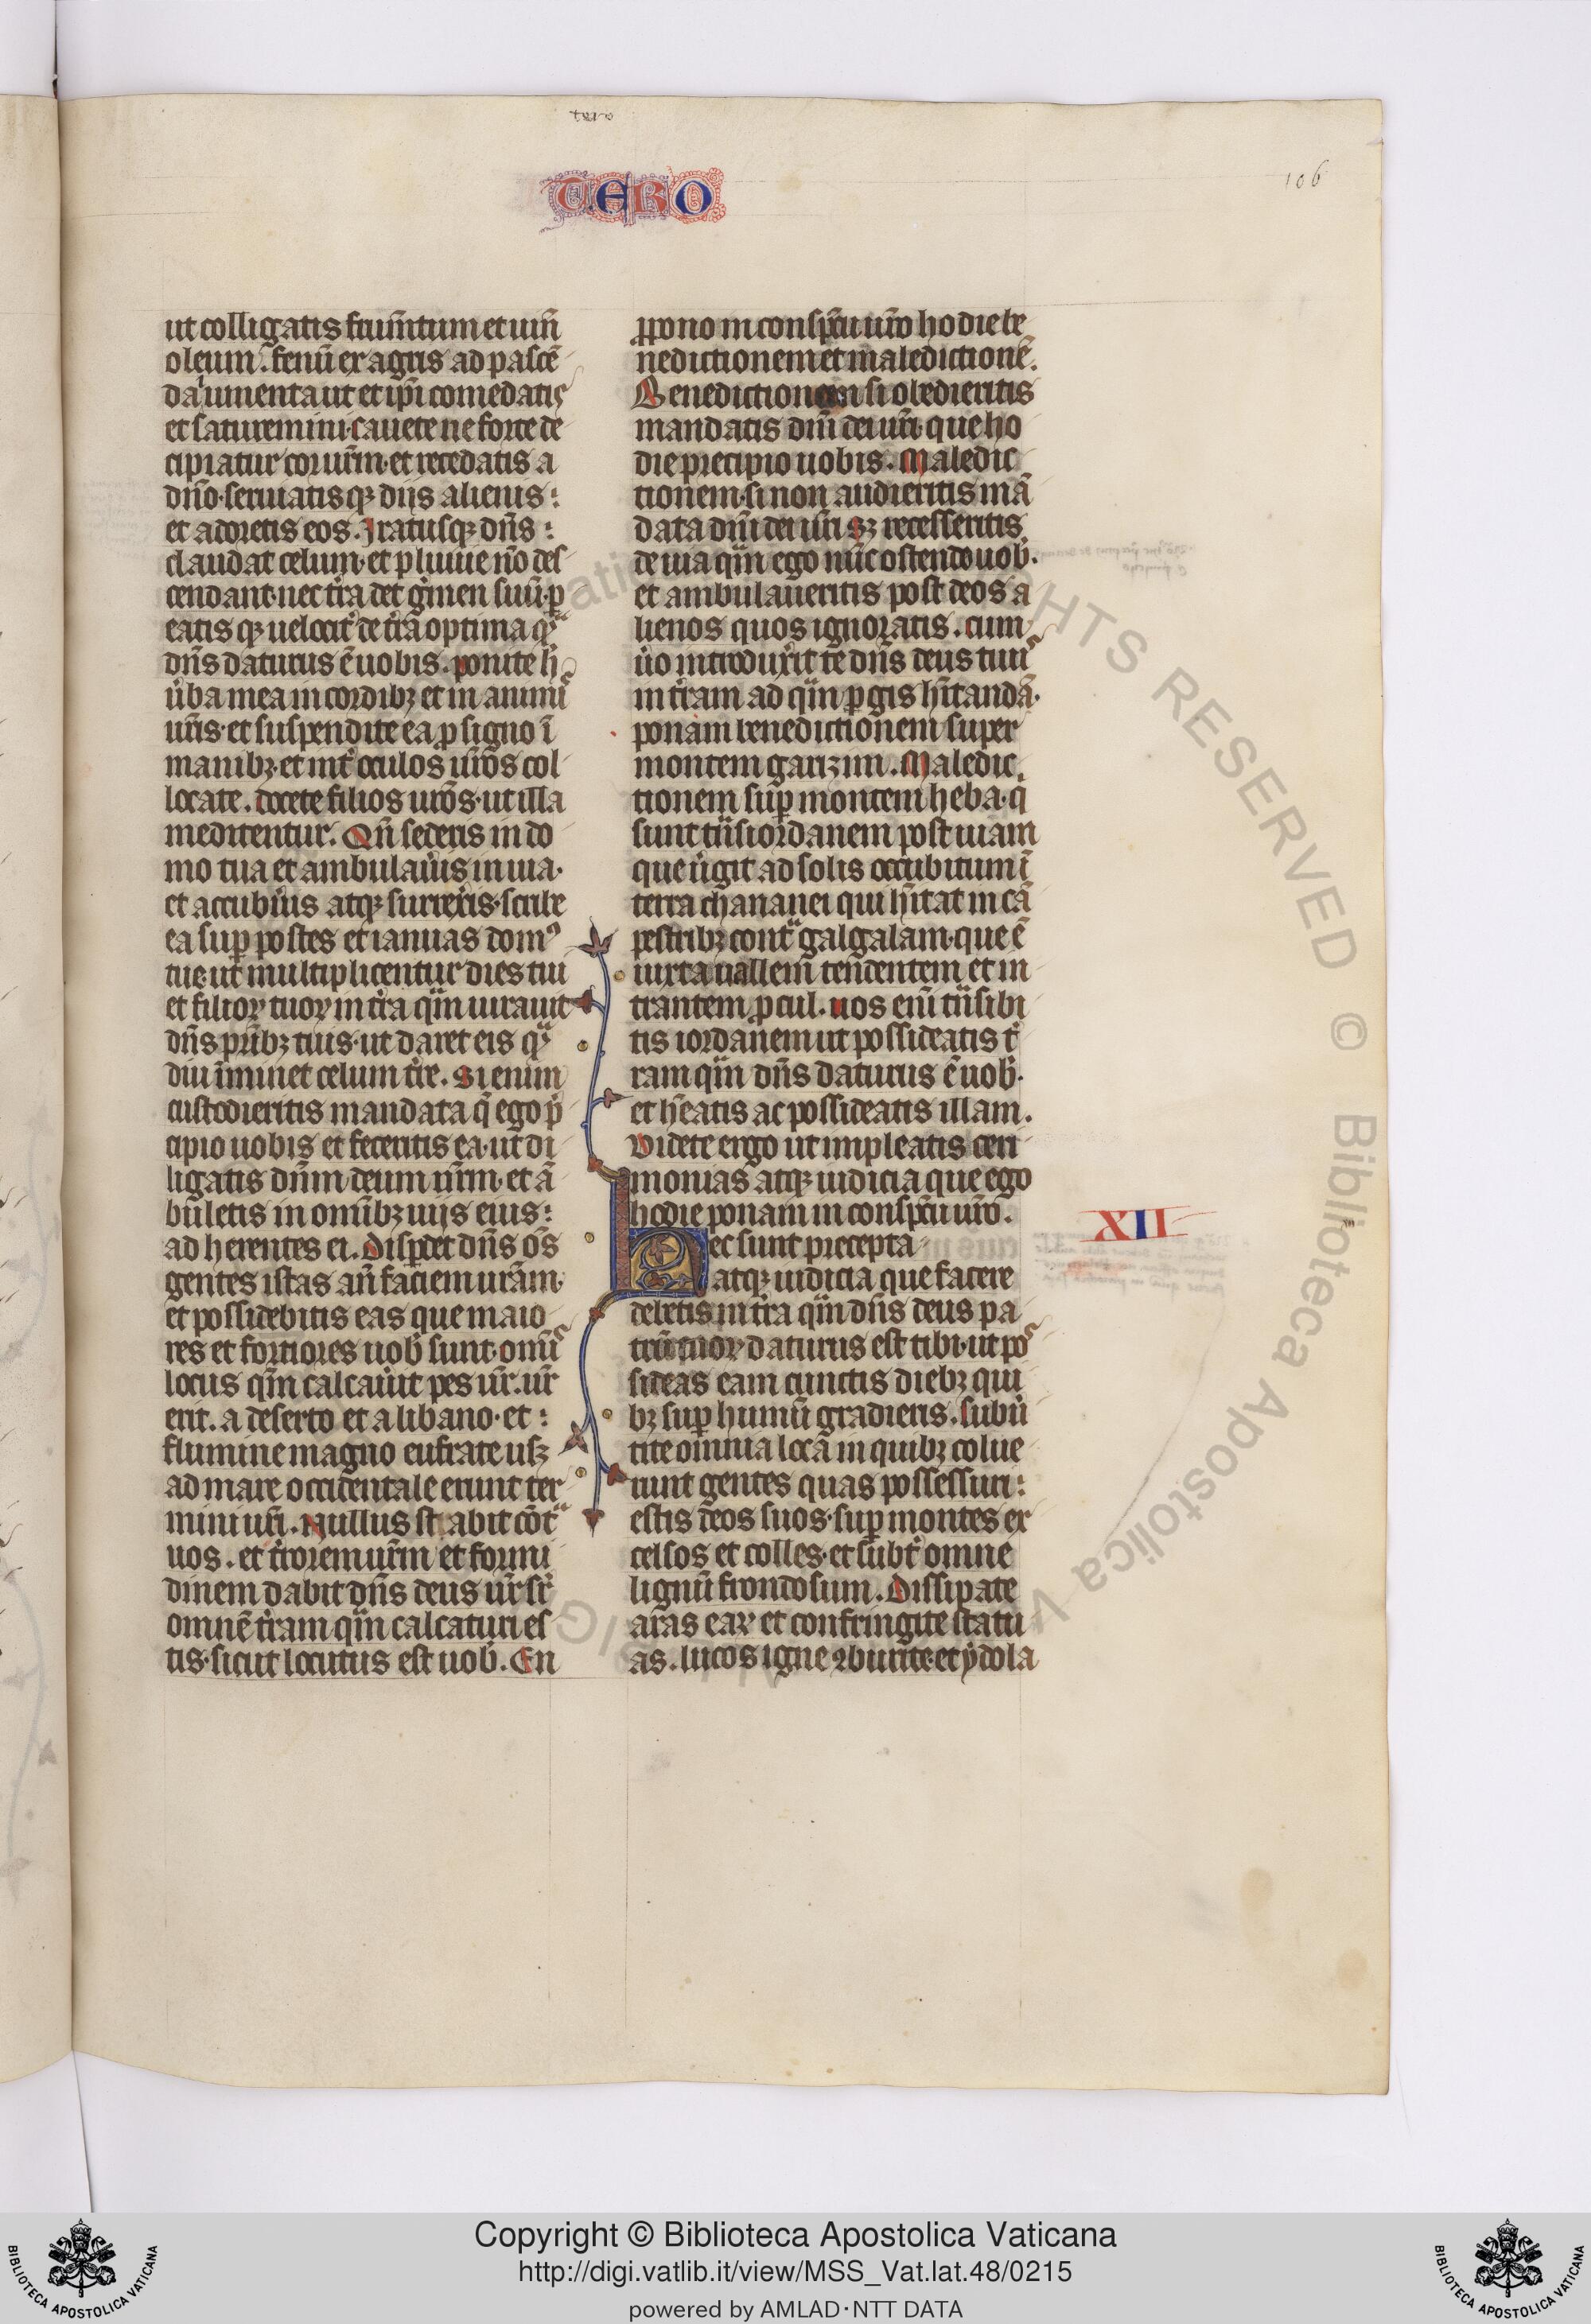 tero
TERO
106
ut colligatis frum̄tum et uin̄
oleum. fenū ex agris ad pascē
da iumenta ut et ip̄i comedatis
et saturemini. cauete ne forte de
cipiatur cor ur̄m. et recedatis a
dn̄o. seruiatisqꝫ diis alienis:
et adoretis eos. Iratusqꝫ dn̄s:
claudat celum. et pluuie nō des
cendant. nec tr̄a det gͥmen suū. ꝑ
eatisqꝫ uelocit̄ de tr̄a optima qͣ
dn̄s daturus ē uobis. ponite h̄
u̓ba mea in cordibꝫ et in animis
ur̄is. et suspendite ea ꝓ signo ī
manibꝫ. et int̓ oculos ur̄os col
locate. docete filios ur̄os. ut illa
meditentur. Qn̄ sederis in do
mo tua et ambulau̓is in uia.
et accubu̓is atqꝫ surrex̓is. scribe
ea suꝑ postes et ianuas domꝰ
tue. ut multiplicentur dies tui
et filioꝝ tuoꝝ in tr̄a qͣm iurauit
dn̄s pr̄ibꝫ tuis. ut daret eis qͣ
diu īminet celum tr̄e. Si enim
custodieritis mandata q̄ ego p̄
cipio uobis et feceritis ea. ut di
ligatis dn̄m deum ur̄m. et ā
buletis in omībꝫ uijs eius:
adherentes ei. Disꝑdet dn̄s oīs
gentes istas an̄ faciem ur̄am.
et possidebitis eas que maio
res et fortiores uob̓ sunt. omīs
locus qͣm calcau̓it pes ur̄. ur̄
erit. a deserto et a libano. et:
flumine magno eufrate usqꝫ
ad mare occidentale erunt ter
mini ur̄i. Nullus stabit cōtͣ
uos. et tr̄orem ur̄m et formi
dinem dabit dn̄s deus ur̄ sr̄
omnē tr̄am qͣm calcaturi es
tis. sicut locutus est uob̓. En
ꝓpono in consp̄tu ur̄o hodie be
nedictionem et maledictionē.
Benedictionem si obedieritis
mandatis dn̄i dei ur̄i. que ho
die precipio uobis. Maledic
tionem. si non audieritis mā
data dn̄i dei ur̄i sꝫ recesseritis
de uia qͣm ego nūc ostendo uob̓.
et ambulaueritis post deos a
lienos quos ignoratis. cum
u̓o introdux̓it te dn̄s deus tuus
in tr̄am ad qͣm ꝑgis hītandā.
ponam benedictionem super
montem garizim. Maledic
tionem suꝑ montem heba. q̄
sunt tn̄siordanem post uiam
que u̓git ad solis occubitum ī
terra chananei qui hītat in cā
pestribꝫ contͣ galgalam. que ē
iuxta uallem tendentem et in
trantem ꝓcul. uos enī tn̄sibi
tis iordanem ut possideatis t̓
ram qͣm dn̄s daturus ē uob̓.
et h̄eatis ac possideatis illam.
Videte ergo ut impleatis ceri
monias atqꝫ iudicia que ego
hodie ponam in consp̄tu ur̄o.
XII
Hec sunt precepta
atqꝫ iudicia que facere
debetis in tr̄a qͣm dn̄s deus pa
trū tuoꝝ daturus est tibi. ut pos
sideas eam cunctis diebꝫ qui
bꝫ suꝑ humū gradieris. subu̓
tite omnia loca in quibꝫ colue
runt gentes quas possessuri:
estis deos suos. suꝑ montes ex
celsos et colles. et subt̓ omne
lignū frondosum. Dissipate
aras eaꝝ et confringite statu
as. lucos igne ꝯburite. et ydola
Copyright © Biblioteca Apostolica Vaticana
http://digi.vatlib.it/view/MSS_Vat.lat.48/0215
powered by AMLAD·NTT DATA
BIBLIOTECA APOSTOLICA VATICANA
BIBLIOTECA APOSTOLICA VATICANA